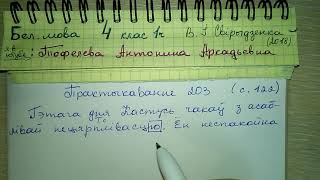 Бел. мова 4 клас 1ч В. І. Свірыдзенка
(2018)
Тофелева Антонина Аркадьевна
Практыкаванне 203 (с. 122)
Гэтага дня Кастусь чакаў з асаб-
лівай нецярплівасцю. Ён неспакойна